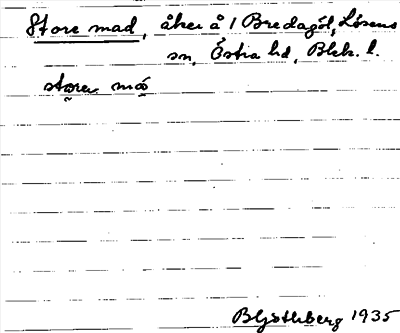 Store mad, åker å 1 Bredagöl, Lösens
sn, Östra hd, Blek. l.
store må
BGötlberg 1935